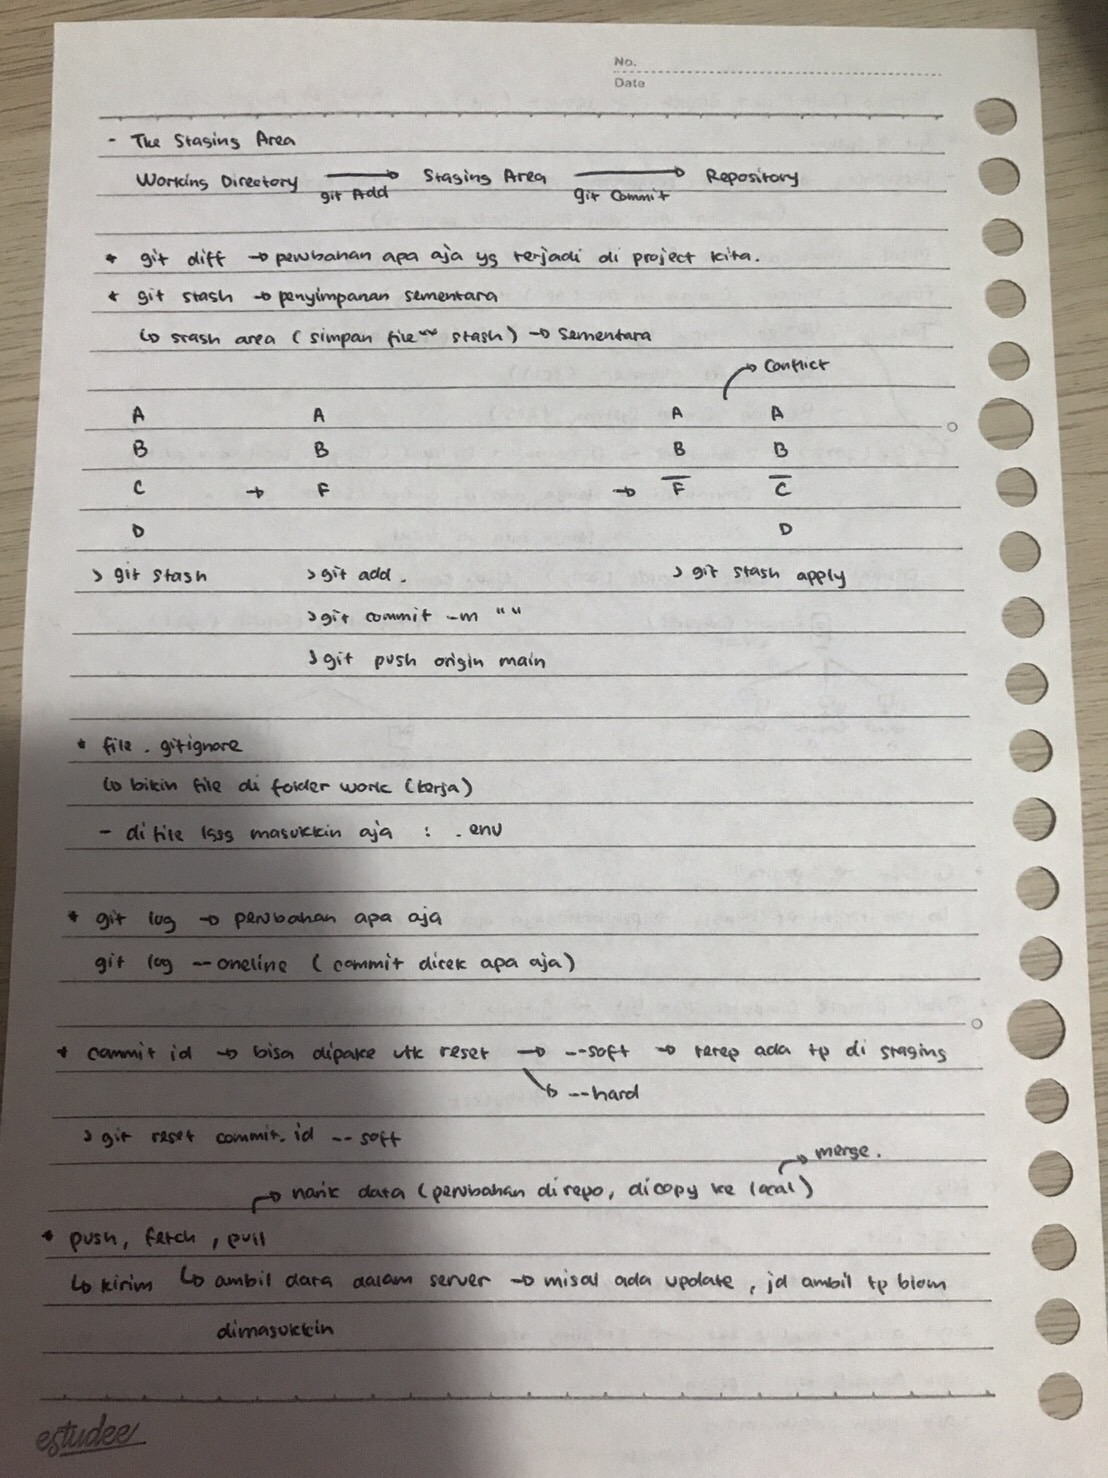 No.
Date
- The Staging Area
Working Directory → Staging Area → Repository
git Add git Commit
* git diff → perubahan apa aja yg terjadi di project kita.
* git stash → penyimpanan sementara
↳ stash area (simpan file" stash) → Sementara
→ Conflict
A A A A
B B B B
C → F → F C
D D
> git stash > git add . > git stash apply
> git commit -m " "
> git push origin main
* file .gitignore
↳ bikin file di folder work (kerja)
- di file lgsg masukkin aja : .env
* git log → perubahan apa aja
git log --oneline (commit dicek apa aja)
* commit id → bisa dipake utk reset → --soft → tetep ada tp di staging
↘ --hard
> git reset commit.id --soft
→ merge.
→ narik data (perubahan di repo, dicopy ke local)
* push, fetch, pull
↳ kirim ↳ ambil data dalam server → misal ada update, jd ambil tp blom
dimasukkin
estudee